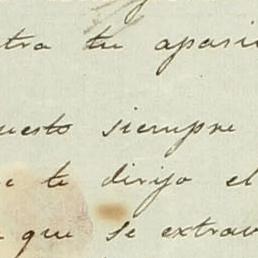 tra tu apasi
uesto siempre
e te dirijo el
que se extrav